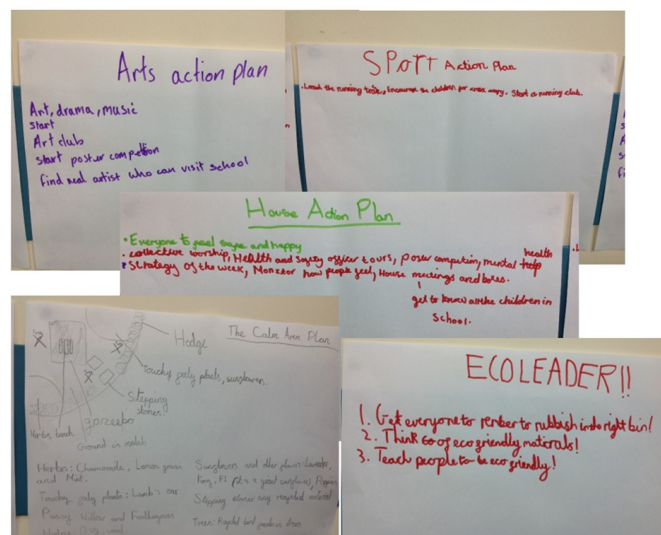 Arts action plan
Art, drama, music
start
Art club
start poster
find real artist who can visit school
SPORT Action Plan
the running track, Encourage the children for . Start a running club.
House Action Plan
• Everyone to feel and happy
health
• collective worship, Health and Safety officer tours, poster, mental
• Strategy of the week, Monitor how people feel, House meetings and boxes.
get to know all the children in
school.
The Calm Area Plan
Hedge
Touchy feely plants, sunflowers.
Stepping
stones
Ground in
Herbs: Chamomile, Lemon
and Mint.
Touchy feely plants: Lamb's
Pussy Willow and
Sunflowers and other plants: Lavender,
Stepping stones: any recycled material
Trees:
ECOLEADER!!
1. Get everyone to to rubbish in right bin!
2. Think of eco friendly
3. Teach people to be eco friendly!